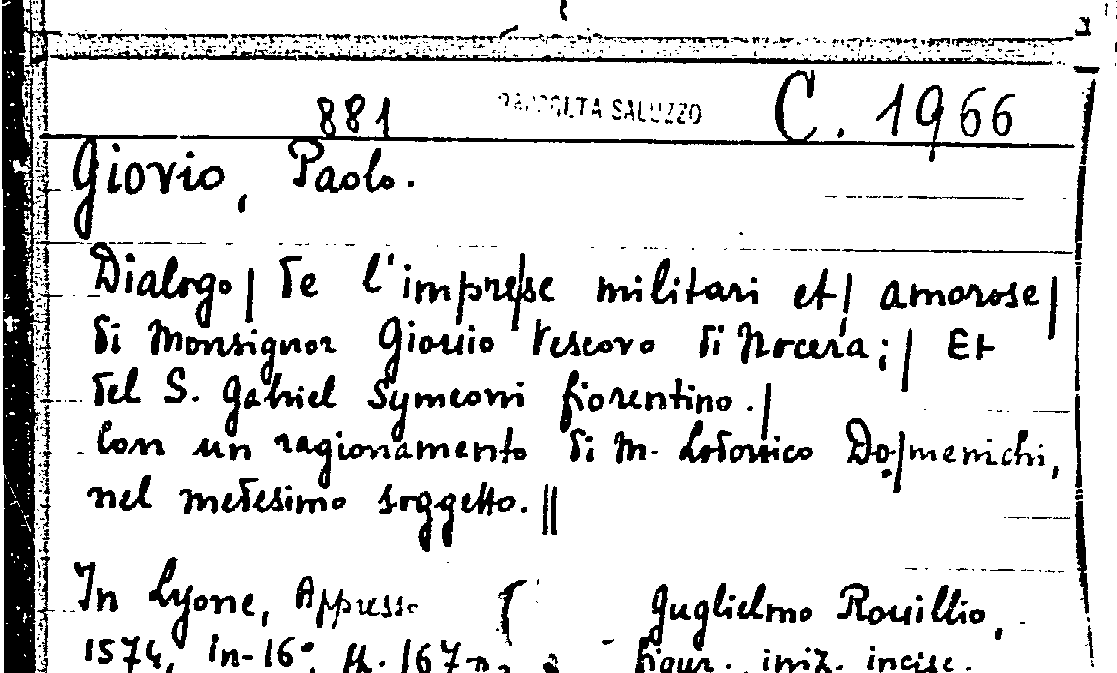 881 RACCOLTA SALUZZO C. 1966
Giovio, Paolo.
Dialogo | de l'imprese militari et | amorose |
di Monsignor Giovio Vescovo di Nocera; | Et
del S. Gabriel Symeoni fiorentino. |
Con un ragionamento di M. Lodovico Do|menichi,
nel medesimo soggetto. ||
In Lyone, Appresso Guglielmo Rovillio,
1574, in-16°, ff. 167 figur. iniz. incise.